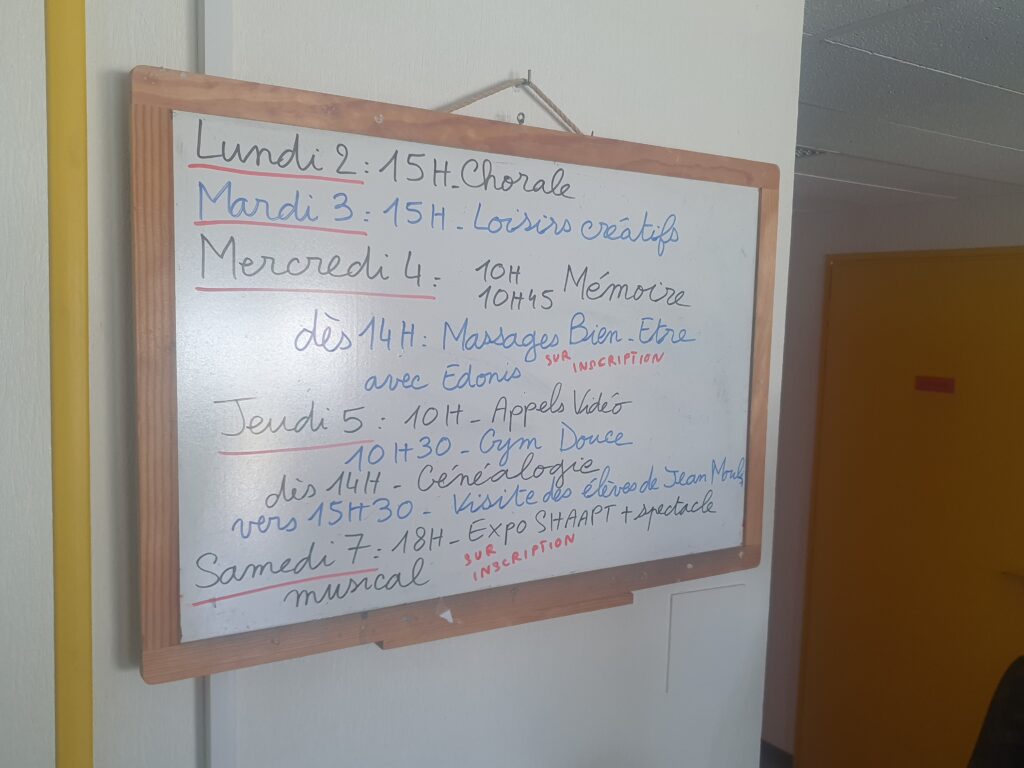 Lundi 2 : 15H - Chorale
Mardi 3 : 15H - Loisirs créatifs
Mercredi 4 : 10H
10H45 Mémoire
dès 14H : Massages Bien-Etre
SUR INSCRIPTION
avec Edonis
Jeudi 5 : 10H - Appels Vidéo
10H30 - Gym Douce
dès 14H - Généalogie
vers 15H30 - Visite des élèves de Jean Moulin
Samedi 7 : 18H - Expo SHAAPT + spectacle
musical
SUR
INSCRIPTION